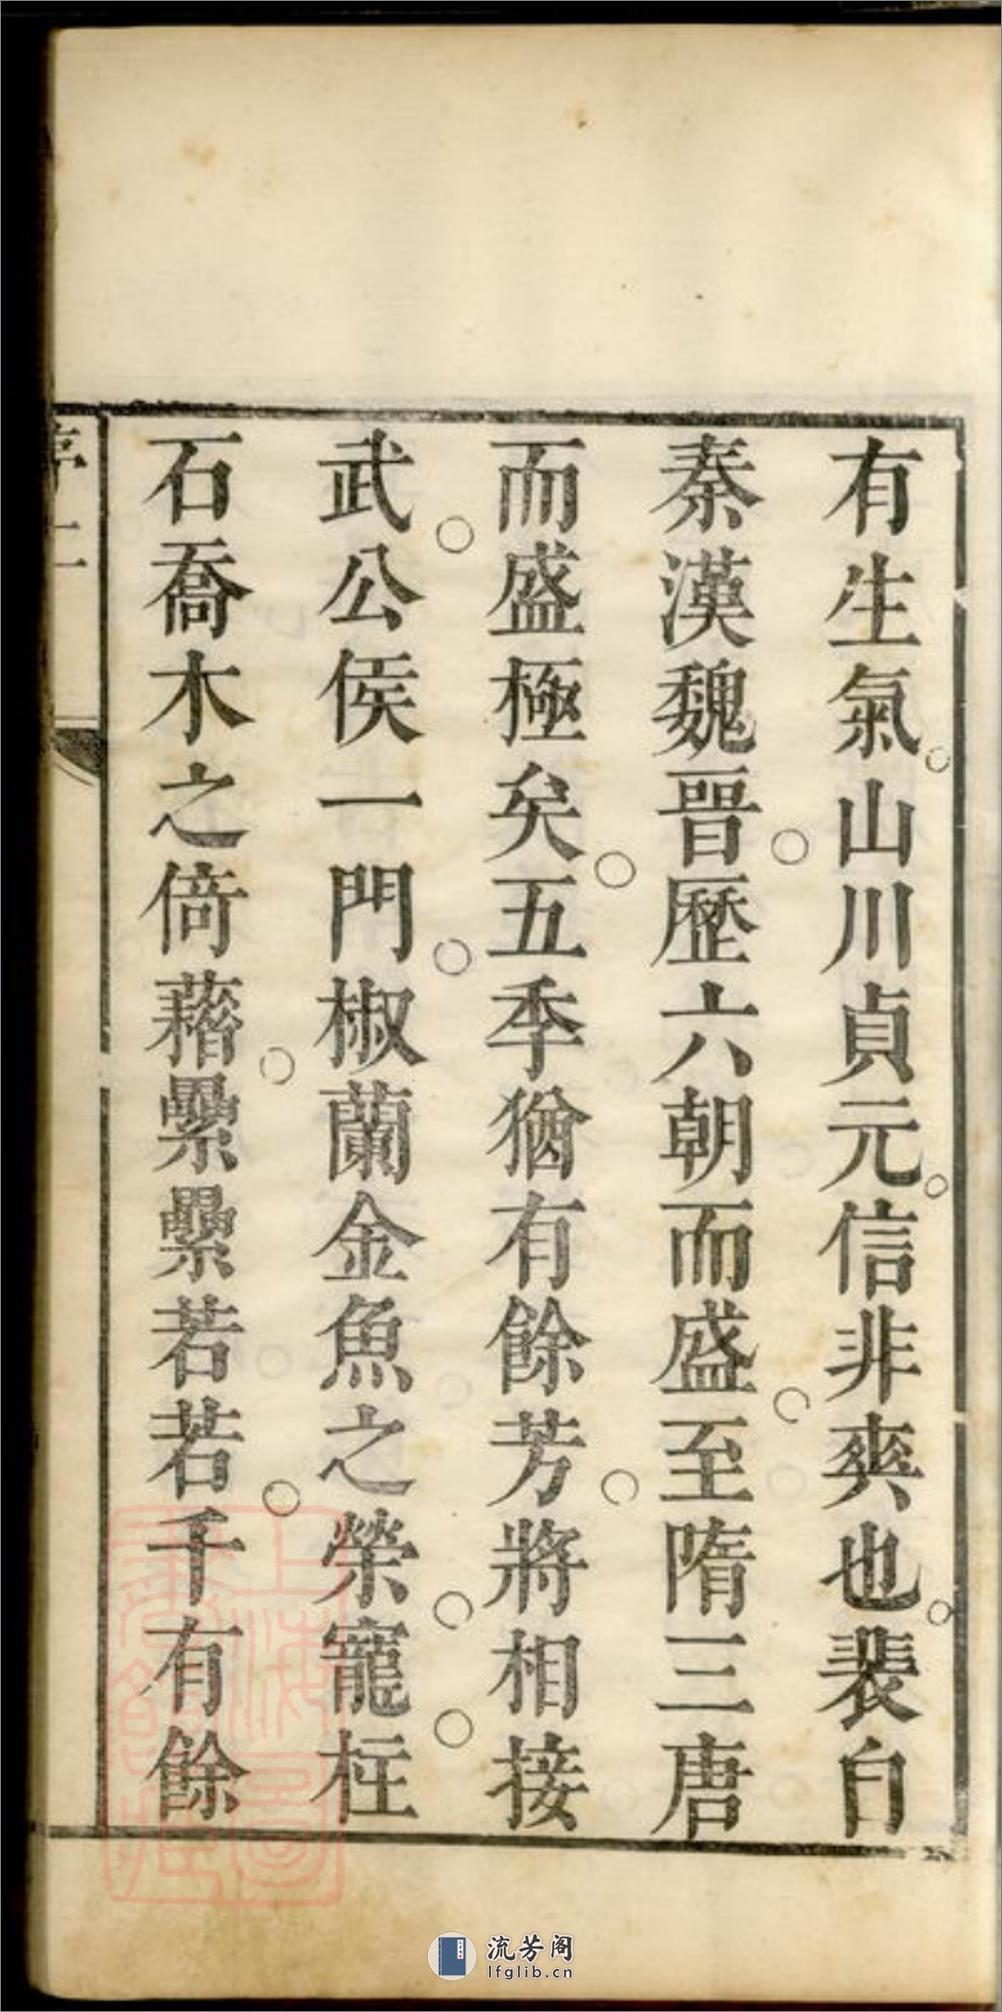 有生氣山川貞元信非爽也裴自
秦漢魏晉歷六朝而盛至隋三唐
而盛極矣五季猶有餘芳將相接
武公侯一門椒蘭金魚之榮寵柱
石喬木之倚藉纍纍若若千有餘
序
上海圖書館藏
流芳阁
lfglib.cn